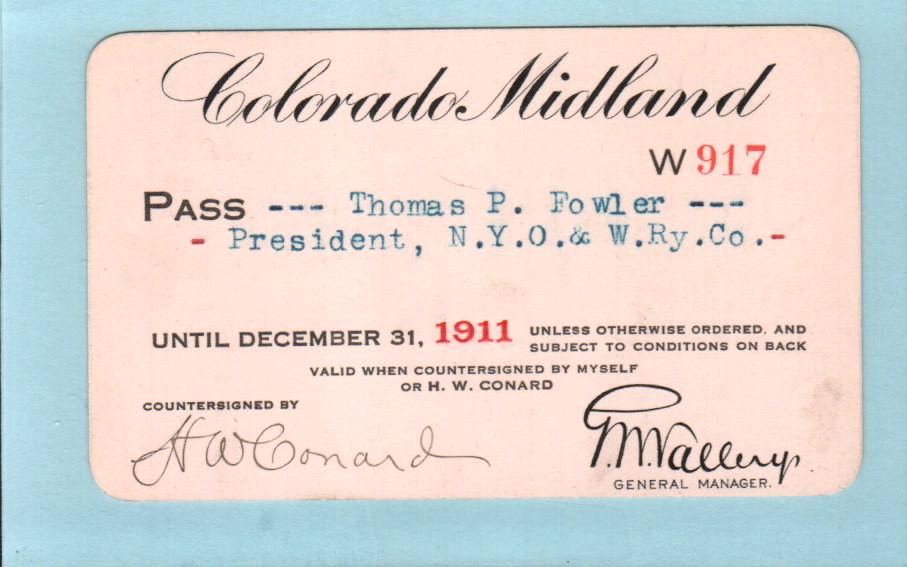 Colorado Midland
W 917
PASS --- Thomas P. Fowler ---
- President, N.Y.O.& W.Ry.Co.-
UNTIL DECEMBER 31, 1911 UNLESS OTHERWISE ORDERED, AND
SUBJECT TO CONDITIONS ON BACK
VALID WHEN COUNTERSIGNED BY MYSELF
OR H. W. CONARD
COUNTERSIGNED BY
H W Conard
Vallery
GENERAL MANAGER.